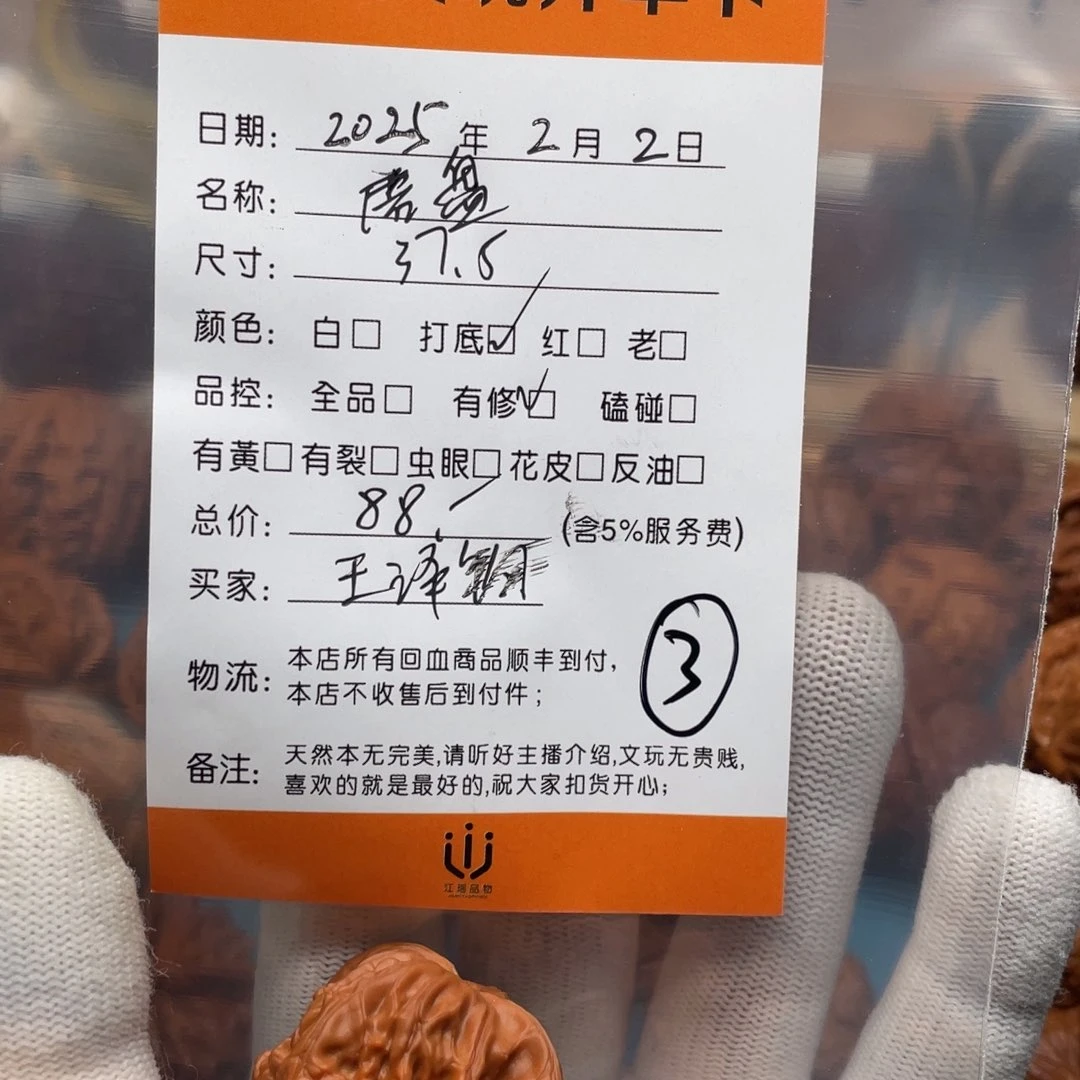 日期: 2025年2月2日
名称: 磨盘
尺寸: 37.6
颜色: 白□ 打底☑ 红□ 老□
品控: 全品□ 有修☑ 磕碰□
有黃□有裂□虫眼□花皮□反油□
总价: 88. (含5%服务费)
买家: 王泽
物流: 本店所有回血商品顺丰到付,
本店不收售后到付件;
3
备注: 天然本无完美,请听好主播介绍,文玩无贵贱,
喜欢的就是最好的,祝大家扣货开心;
江瑶品物